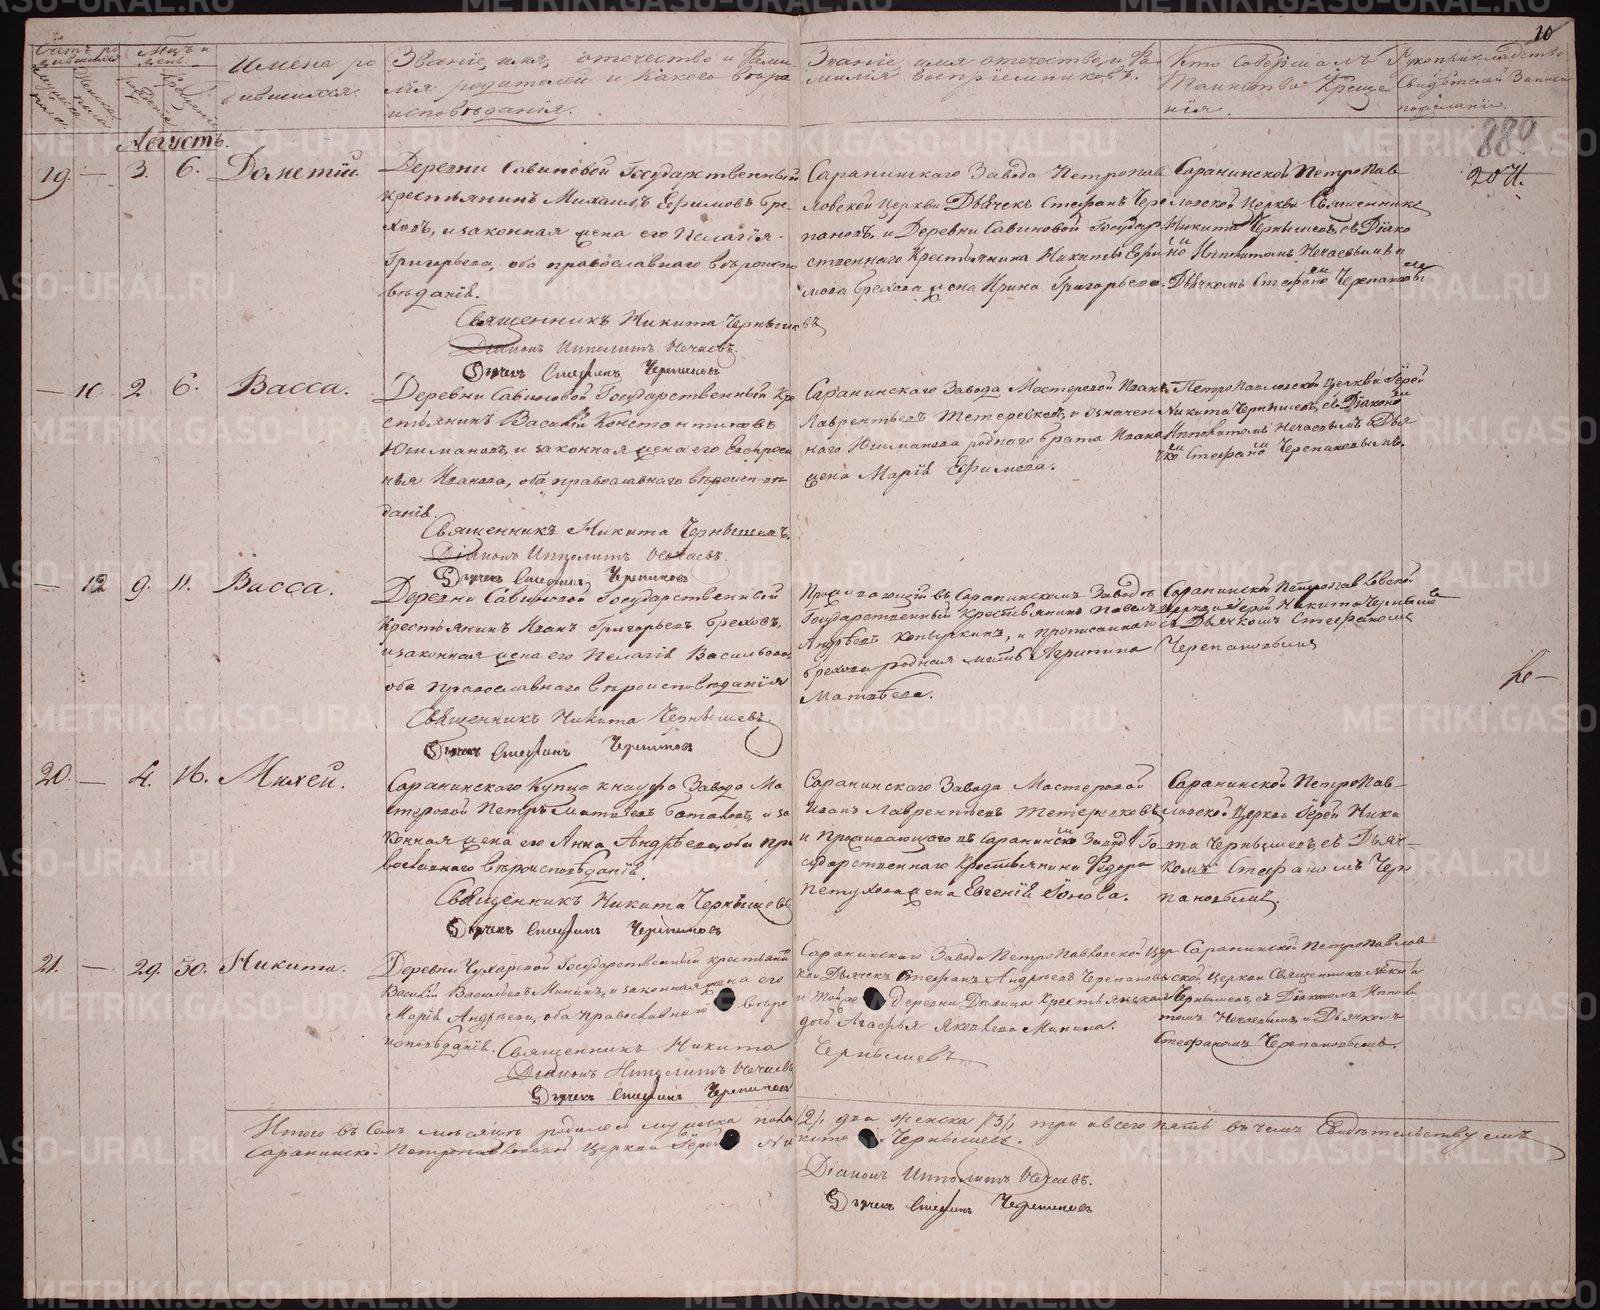 10
Счетъ ро
дившихся
Мужеска
пола.
Женска
пола
Мц҃ъ и
день.
рожденія
крещенія
Имена ро
дившихся.
Званіе, имя, отечество и Фами
лія родителей и какого вѣро
исповѣданія.
Званіе, имя отечество, и Фа
милія воспріемниковъ.
Кто совершалъ
Таинство Креще
нія.
Рукоприкладство
Свидѣтелей записи
по желанію.
889
Августъ.
19. — 3. 6. Дометій.
Деревни Савиновой Государственный
крестьянинъ Михаилъ Ефимовъ Бре-
ховъ, и законная жена его Пелагія
Григорьева, оба православнаго вѣроиспо
вѣданія.
Священникъ Никита Чернышевъ
Діаконъ Ипполитъ Нечаевъ.
Дьячекъ Стефанъ Черепановъ
Саранинскаго Завода Петропав
ловской церкви Дьячекъ Стефанъ Чере
пановъ, и Деревни Савиновой Государ
ственнаго Крестьянина Никиты Ефи
мова Брехова жена Ирина Григорьева.
Саранинской Петропав
ловской Церкви Священникъ
Никита Чернышевъ, съ Діако
номъ Ипполитомъ Нечаевымъ и
Дьячкомъ Стефаномъ Черепановы
— 11 2. 6. Васса.
Деревни Савиновой Государственный Кре
стьянинъ Василій Константиновъ
Юшмановъ, и законная жена его Евфроси
нья Иванова, оба православнаго вѣроисповѣ
данія.
Священникъ Никита Чернышевъ.
Діаконъ Ипполитъ Нечаевъ.
Дьячекъ Стефанъ Черепановъ
Саранинскаго Завода Мастеровой Иванъ
Лаврентьевъ Тетеревковъ, и означен
наго Юшманова роднаго брата Ивана
жена Марія Ефимова.
Петропавловской Церкви Іерей
Никита Чернышевъ, съ Діакономъ
Ипполитомъ Нечаевымъ и Дья
чкомъ Стефаномъ Черепановымъ.
— 12 9. 11. Васса.
Деревни Савиновой Государственный
Крестьянинъ Иванъ Григорьевъ Бреховъ,
и законная жена его Пелагія Васильева,
оба православнаго вѣроисповѣданія
Священникъ Никита Чернышевъ.
Дьячекъ Стефанъ Черепановъ
Проживающій въ Саранинскомъ Заводѣ
Государственный Крестьянинъ Павелъ
Андрѣевъ Копыркинъ, и прописаннаго
Брехова родная мать Агрипина
Матвѣева.
Саранинской Петропавловской
Церкви Іерей Никита Чернышевъ
съ Дьячкомъ Стефаномъ
Черепановымъ
20. — 4. 16. Михей.
Саранинскаго Купца Кнауфа Завода Ма
стеровой Петръ Матвѣевъ Ботаковъ, и за
конная жена его Анна Андрѣева, оба пра
вославнаго вѣроисповѣданія.
Священникъ Никита Чернышевъ
Дьячекъ Стефанъ Черепановъ
Саранинскаго Завода Мастеровой
Иванъ Лаврентьевъ Тетеревковъ,
и проживающаго въ Саранинскомъ Заводѣ Го
сударственнаго Крестьянина Федора
Петухова жена Евгенія Іонова.
Саранинской Петропав-
ловской Церкви Іерей Ники
та Чернышевъ, съ Дьяч-
комъ Стефаномъ Чере
пановымъ.
21. — 29. 30. Никита.
Деревни Чухаревой Государственный крестьянинъ
Василій Васильевъ Мининъ, и законная жена его
Марія Андрѣева, оба православнаго вѣро
исповѣданія.
Священникъ Никита Чернышевъ
Діаконъ Ипполитъ Нечаевъ
Дьячекъ Стефанъ Черепановъ
Саранинскаго Завода Петропавловской Цер
кви Дьячекъ Стефанъ Андреевъ Черепановъ
и той же деревни Дѣвица Крестьянская
дочь Агафья Яковлева Минина.
Саранинской Петропавлов
ской Церкви Священникъ Никита
Чернышевъ, съ Діакономъ Иппол
томъ Нечаевымъ и Дьячкомъ
Стефаномъ Черепановымъ.
Итого въ семъ мѣсяцѣ родилося мужеска пола /2/ два женска /3/ три а всего пять въ чемъ Свидѣтельствуемъ
Саранинской Петропавловской Церкви Іерей Никита Чернышевъ.
Діаконъ Ипполитъ Нечаевъ.
Дьячекъ Стефанъ Черепановъ
METRIKI.GASO-URAL.RU